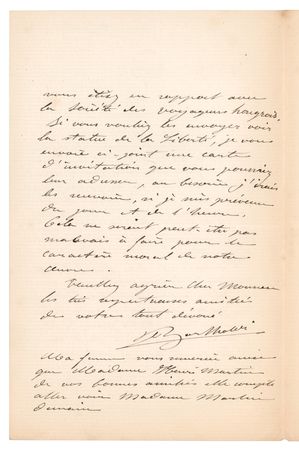 vous étiez en rapport avec
la société des voyageurs hongrois.
Si vous vouliez les envoyer voir
la statue de la Liberté, je vous
envoie ci-joint une carte
d'invitation que vous pourriez
leur adresser, au besoin j'irais
les recevoir, si je suis prévenu
du jour et de l'heure.
Cela ne serait peut-être pas
mauvais à faire pour le
caractère moral de notre
œuvre.
Veuillez agréer cher Monsieur
les très respectueuses amitiés
de votre tout dévoué
Bartholdi
Ma femme vous remercie ainsi
que Madame Henri Martin
de vos bonnes amitiés elle compte
aller voir Madame Martin
demain